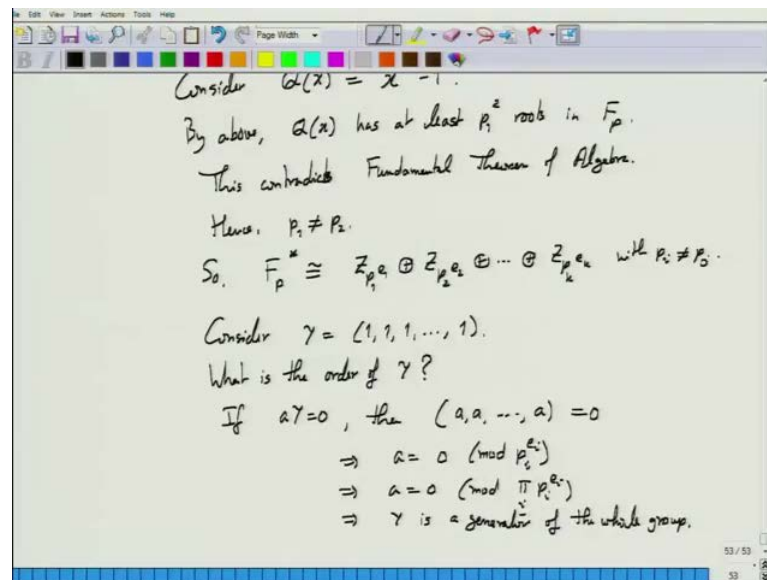 File Edit View Insert Actions Tools Help
Page Width
Consider Q(x) = x - 1.
By above, Q(x) has at least p₁² roots in Fₚ.
This contradicts Fundamental Theorem of Algebra.
Hence, p₁ ≠ p₂.
So, Fₚ* ≅ Z_{p₁^{e₁}} ⊕ Z_{p₂^{e₂}} ⊕ ... ⊕ Z_{p_k^{e_k}} with pᵢ ≠ pⱼ.
Consider γ = (1, 1, 1, ..., 1).
What is the order of γ?
If aγ=0, then (a, a, ..., a) = 0
⇒ a = 0 (mod pᵢ^{eᵢ})
⇒ a = 0 (mod ∏ᵢ pᵢ^{eᵢ})
⇒ γ is a generator of the whole group.
53 / 53
53